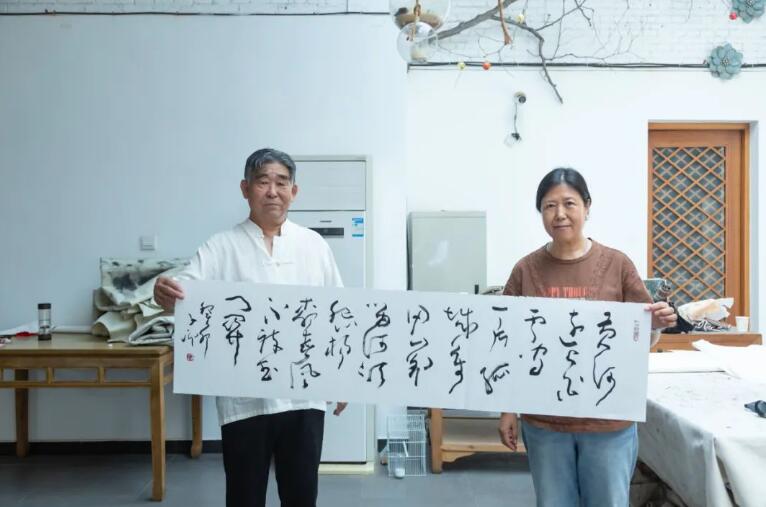 黄河
远上白
云间
一片孤
城万
仞山羌
笛何须
怨杨
柳春风
不度玉
门关